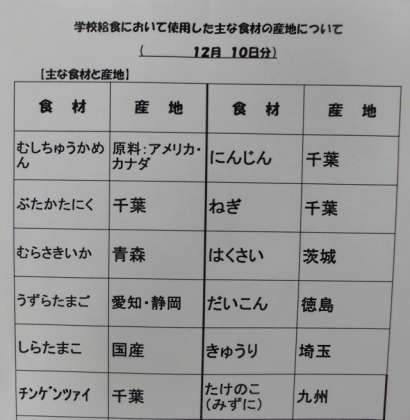 学校給食において使用した主な食材の産地について
( 12月 10日分)
【主な食材と産地】
食 材 産 地 食 材 産 地
むしちゅうかめん 原料:アメリカ・カナダ にんじん 千葉
ぶたかたにく 千葉 ねぎ 千葉
むらさきいか 青森 はくさい 茨城
うずらたまご 愛知・静岡 だいこん 徳島
しらたまこ 国産 きゅうり 埼玉
チンゲンツァイ 千葉 たけのこ(みずに) 九州